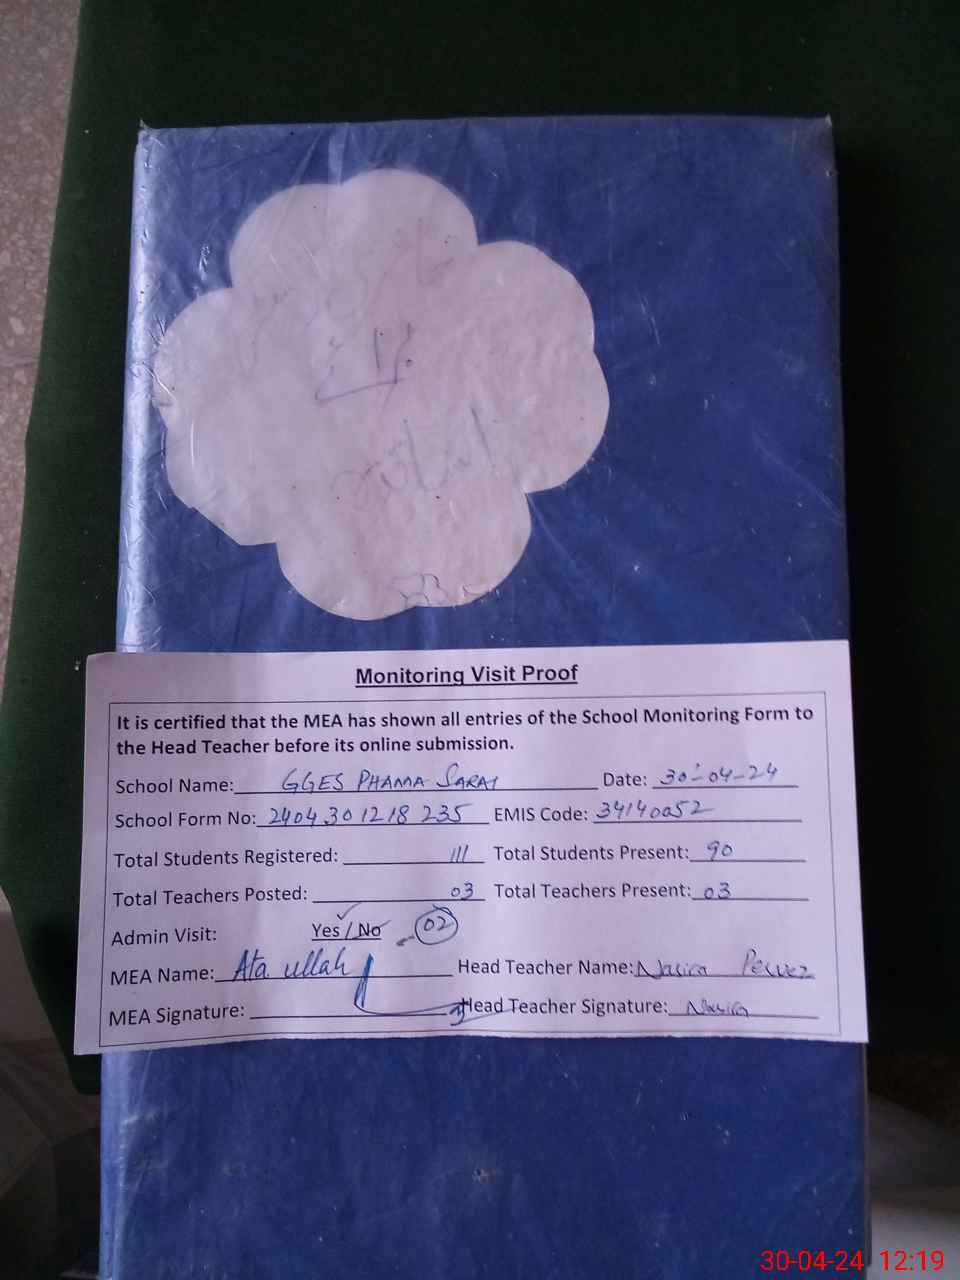 Monitoring Visit Proof
It is certified that the MEA has shown all entries of the School Monitoring Form to
the Head Teacher before its online submission.
School Name: GGES PHAMA SARAI Date: 30-04-24
School Form No: 2404301218235 EMIS Code: 34140052
Total Students Registered: 111 Total Students Present: 90
Total Teachers Posted: 03 Total Teachers Present: 03
Admin Visit: Yes / No 02
MEA Name: Ata ullah Head Teacher Name: Nasira Pervez
MEA Signature: Head Teacher Signature: Nasira
30-04-24 12:19